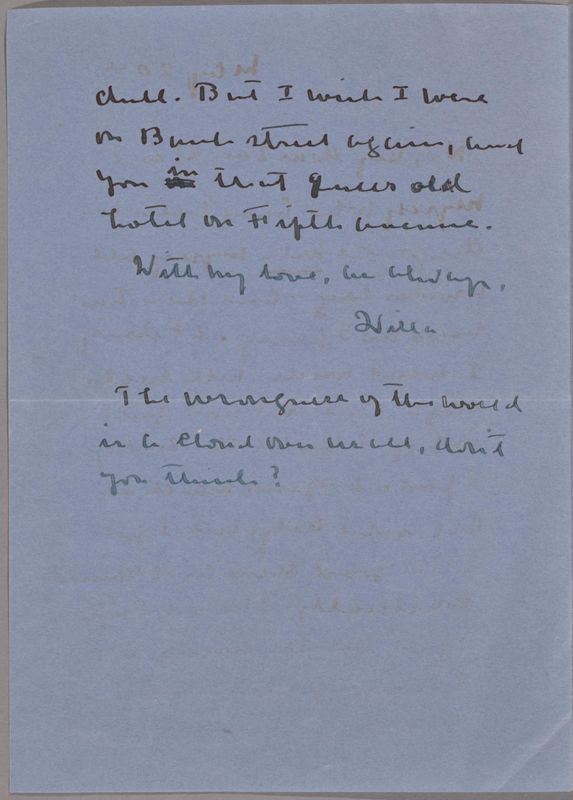 dull. But I wish I were
on Bank street again, and
you in that queer old
hotel on Fifth avenue.
With my love, as always,
Willa
The wrongness of the world
is a cloud over us all, don't
you think?